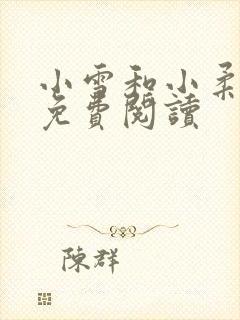 小雪和小柔
免費閱讀
陳群